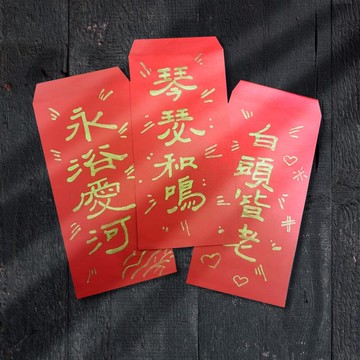 永浴愛河
琴瑟和鳴
白頭皆老